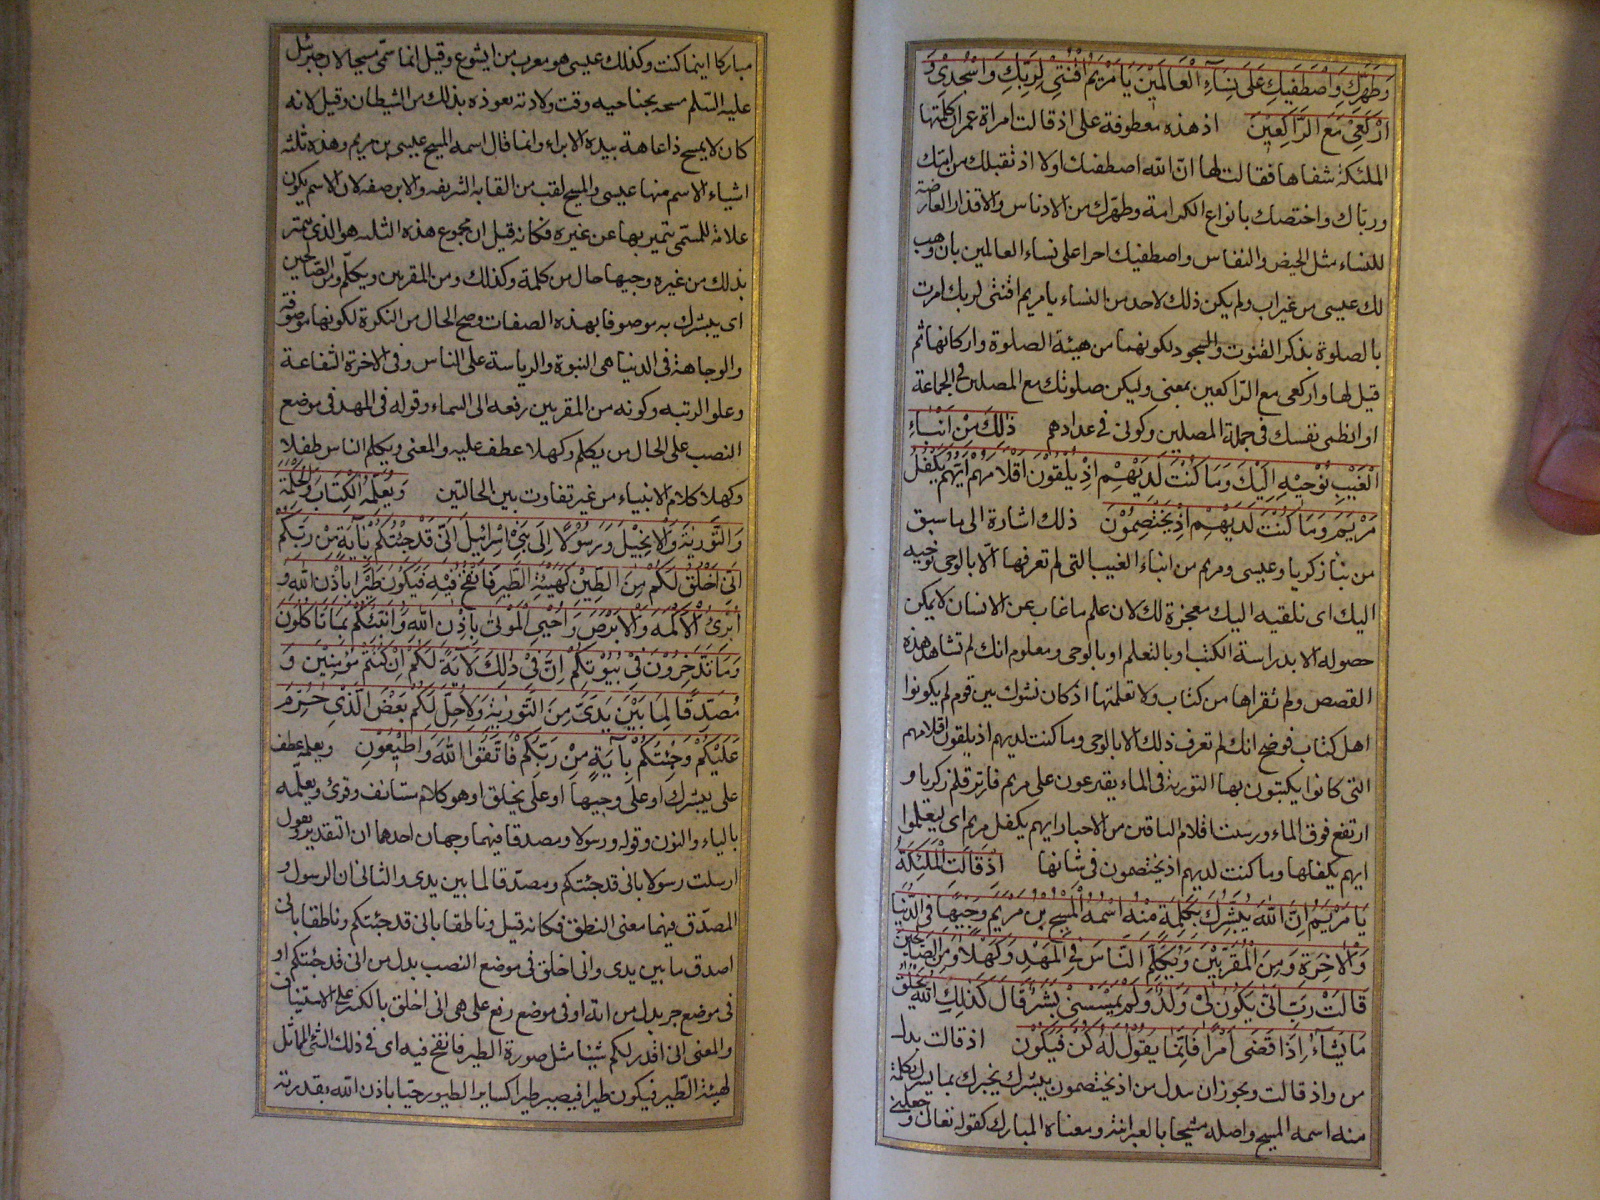 وَطَهَّرَكِ وَاصْطَفَيكِ عَلَى نِسَاءِ الْعَالَمِينَ يَا مَرْيَمُ اقْنُتِي لِرَبِّكِ وَاسْجُدِي وَ
ارْكَعِي مَعَ الرَّاكِعِينَ اذ هذه معطوفة على اذ قالت امراة عمران كلمتها
الملئكة شفاها فقالت لها انّ الله اصطفيك اولا اذ تقبلك من امّك
وربّاك واختصك بانواع الكرامة وطهّرك من الادناس والاقذار العارضة
للنساء مثل الحيض والنفاس واصطفيك اخرا على نساء العالمين بان وهب
لك عيسى من غير اب ولم يكن ذلك لاحد من النساء يا مريم اقنتى لربك امرت
بالصلوة بذكر القنوت والسجود لكونهما من هيئة الصلوة واركانها ثم
قيل لها واركعى مع الرّاكعين بمعنى وليكن صلوتك مع المصلين فى الجماعة
او انظمى نفسك فى جملة المصلين وكونى فى عدادهم ذٰلِكَ مِنْ اَنْبَاءِ
الْغَيْبِ نُوْحِيْهِ اِلَيْكَ وَمَا كُنْتَ لَدَيْهِمْ اِذْ يُلْقُوْنَ اَقْلَامَهُمْ اَيُّهُمْ يَكْفُلُ
مَرْيَمَ وَمَا كُنْتَ لَدَيْهِمْ اِذْ يَخْتَصِمُوْنَ ذلك اشارة الى ما سبق
من نبا زكريا وعيسى ومريم من انباء الغيب التى لم تعرفها الّا بالوحى نوحيه
اليك اى نلقيه اليك معجزة لك لان علم ما غاب عن الانسان لا يمكن
حصوله الا بدراسة الكتب او بالتعلم او بالوحى ومعلوم انك لم تشاهد هذه
القصص ولم تقراها من كتاب ولا تعلمتها اذ كان نشوك بين قوم لم يكونوا
اهل كتاب فوضح انك لم تعرف ذلك الا بالوحى وما كنت لديهم اذ يلقون اقلامهم
التى كانوا يكتبون بها التورية فى الماء يقترعون على مريم فارتز قلم زكريا و
ارتفع فوق الماء ورسبت اقلام الباقين من الاحبار ايهم يكفل مريم اى ليعلموا
ايهم يكفلها وما كنت لديهم اذ يختصمون فى شانها اِذْ قَالَتِ الْمَلٰئِكَةُ
يَا مَرْيَمُ اِنَّ اللّٰهَ يُبَشِّرُكِ بِكَلِمَةٍ مِنْهُ اسْمُهُ الْمَسِيْحُ بْنُ مَرْيَمَ وَجِيْهًا فِى الدُّنْيَا
وَالْاٰخِرَةِ وَمِنَ الْمُقَرَّبِيْنَ وَيُكَلِّمُ النَّاسَ فِى الْمَهْدِ وَكَهْلًا وَمِنَ الصَّالِحِيْنَ
قَالَتْ رَبِّ اَنّٰى يَكُوْنُ لِىْ وَلَدٌ وَلَمْ يَمْسَسْنِىْ بَشَرٌ قَالَ كَذٰلِكِ اللّٰهُ يَخْلُقُ
مَا يَشَاءُ اِذَا قَضٰى اَمْرًا فَاِنَّمَا يَقُوْلُ لَهُ كُنْ فَيَكُوْنُ اذ قالت بدل
من واذ قالت ويجوز ان يبدل من اذ يختصمون يبشرك يخبرك بما يسرك بكلمة
منه اسمه المسيح واصله مشيحا بالعبرانية ومعناه المبارك كقوله تعالى وجعلنى
مباركا اينما كنت وكذلك عيسى هو معرب من ايشوع وقيل انما سمّى مسيحا لان جبرئيل
عليه السّلم مسحه بجناحيه وقت ولادته يعوذه بذلك من الشيطان وقيل لانه
كان لا يمسح ذا عاهة بيده الا براء وانما قال اسمه المسيح عيسى بن مريم وهذه ثلثة
اشياء الاسم منها عيسى والمسيح لقب من القابه الشريفه والابن صفه لان الاسم يكون
علامة للمسمّى يتميز بها عن غيره فكانه قيل ان مجموع هذه الثلثه هو الذى يتميز
بذلك من غيره وجيها حال من كلمة وكذلك ومن المقربين ويكلّم ومن الصّالحين
اى يبشرك به موصوفا بهذه الصفات وصح الحال من النكرة لكونها موصوفة
والوجاهة فى الدنيا هى النبوة والرياسة على الناس وفى الاخرة الشفاعة
وعلو الرتبه وكونه من المقربين رفعه الى السماء وقوله فى المهد فى موضع
النصب على الحال من يكلم وكهلا عطف عليه والمعنى ويكلم الناس طفلا
وكهلا كلام الانبياء من غير تفاوت بين الحالتين وَيُعَلِّمُهُ الْكِتَابَ وَالْحِكْمَةَ
وَالتَّوْرٰيةَ وَالْاِنْجِيْلَ وَرَسُوْلًا اِلٰى بَنِىْ اِسْرَائِيْلَ اَنِّىْ قَدْ جِئْتُكُمْ بِاٰيَةٍ مِنْ رَبِّكُمْ
اَنِّىْ اَخْلُقُ لَكُمْ مِنَ الطِّيْنِ كَهَيْئَةِ الطَّيْرِ فَاَنْفُخُ فِيْهِ فَيَكُوْنُ طَيْرًا بِاِذْنِ اللّٰهِ وَ
اُبْرِئُ الْاَكْمَهَ وَالْاَبْرَصَ وَاُحْيِى الْمَوْتٰى بِاِذْنِ اللّٰهِ وَاُنَبِّئُكُمْ بِمَا تَاْكُلُوْنَ
وَمَا تَدَّخِرُوْنَ فِىْ بُيُوْتِكُمْ اِنَّ فِىْ ذٰلِكَ لَاٰيَةً لَكُمْ اِنْ كُنْتُمْ مُؤْمِنِيْنَ وَ
مُصَدِّقًا لِمَا بَيْنَ يَدَىَّ مِنَ التَّوْرٰيةِ وَلِاُحِلَّ لَكُمْ بَعْضَ الَّذِىْ حُرِّمَ
عَلَيْكُمْ وَجِئْتُكُمْ بِاٰيَةٍ مِنْ رَبِّكُمْ فَاتَّقُوا اللّٰهَ وَاَطِيْعُوْنِ ويعلمه عطف
على يبشرك او على وجيها او على يخلق او هو كلام مستانف وقرئ ويعلّمه
بالياء والنون وقوله ورسولا ومصدقا فيهما وجهان احدهما ان التقدير ويقول
ارسلت رسولا بانى قد جئتكم ومصدّقا لما بين يدى والثانى ان الرسول و
المصدّق فيهما معنى النطق فكانه قيل وناطقا بانى قد جئتكم وناطقا بانى
اصدق ما بين يدى وانى اخلق فى موضع النصب بدل من انى قد جئتكم او
فى موضع جر بدل من اية او فى موضع رفع على هى انى اخلق بالكسر على الاستيناف
والمعنى انى اقدر لكم شيئا مثل صورة الطير فانفخ فيه اى فى ذلك الشئ المماثل
لهيئة الطّير فيكون طيرا فيصير طيرا كساير الطيور حيّا باذن الله بقدرته